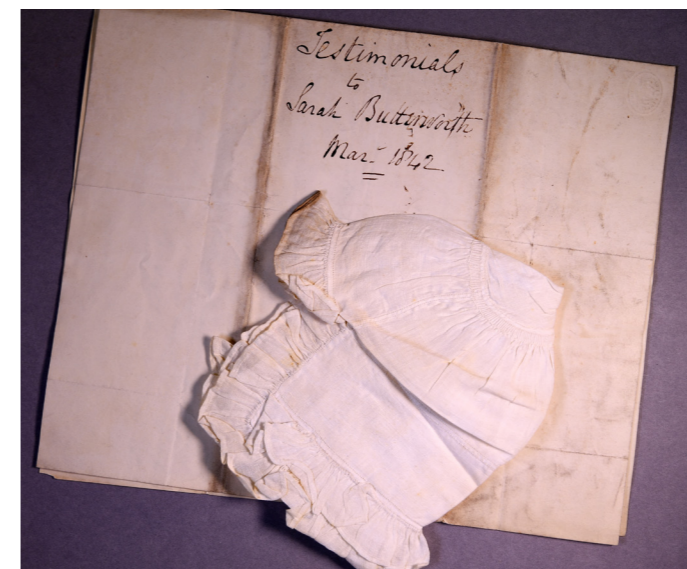 Testimonials
to
Sarah Butterworth
Mar: 1842